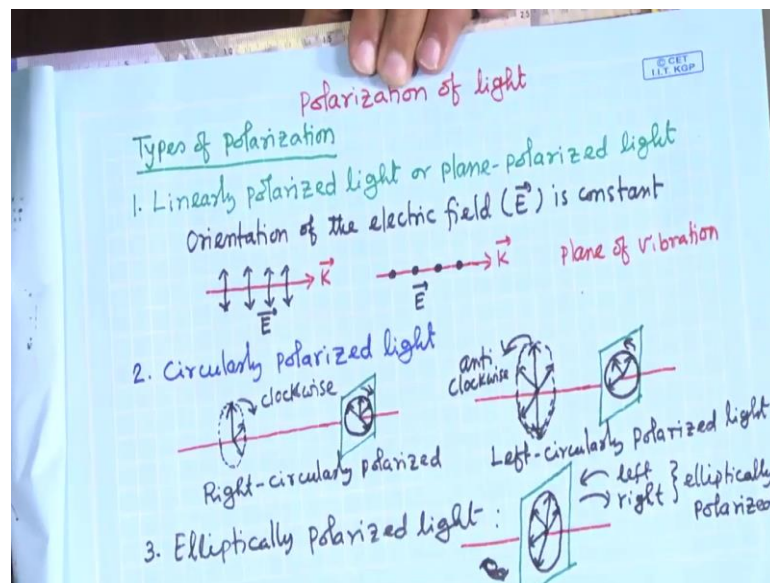 © CET
I.I.T. KGP
Polarization of light
Types of polarization
1. Linearly polarized light or plane-polarized light
Orientation of the electric field (E⃗) is constant
K⃗
E⃗
K⃗
E⃗
Plane of vibration
2. Circularly polarized light
clockwise
Right-circularly polarized
anti
clockwise
Left-circularly polarized light
3. Elliptically polarized light :
left
right } elliptically
polarized